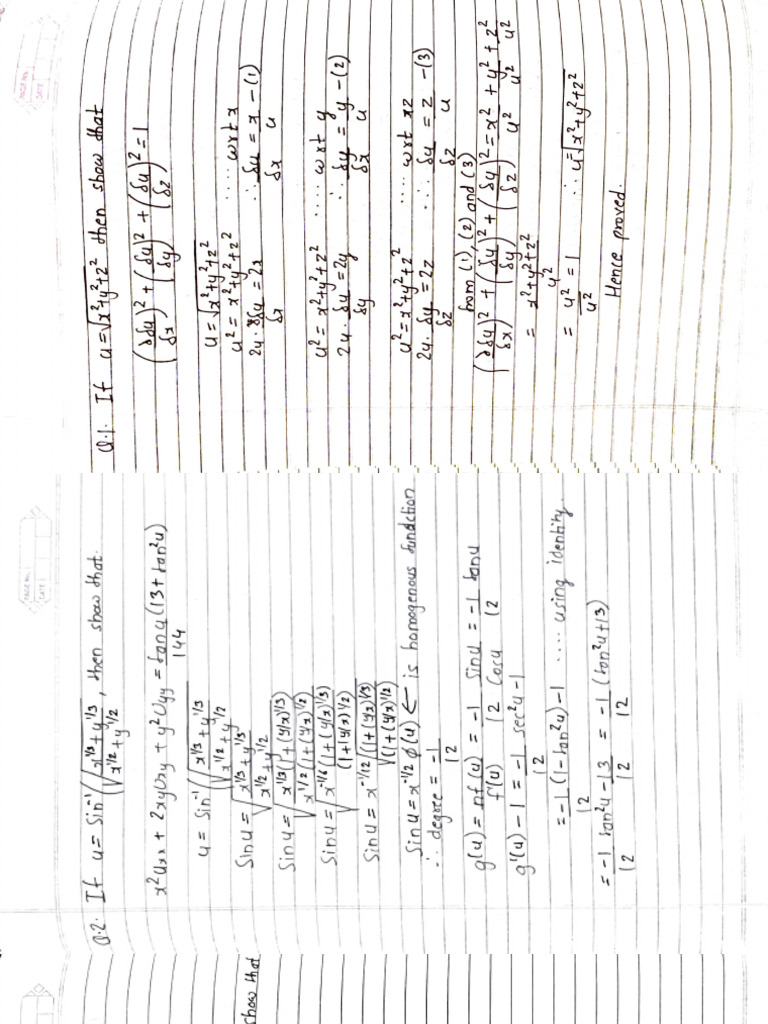 Q.1. If u=√x²+y²+z² then show that
(∂δu/δx)² + (δu/δy)² + (δu/δz)² = 1
u = √x²+y²+z²
u² = x²+y²+z² ..... wrt x
2u . δu/δx = 2x ∴ δu/δx = x/u - (1)
u² = x²+y²+z² .... wrt y
2u . δu/δy = 2y ∴ δy/δx = y/u - (2)
u² = x²+y²+z² .... wrt xz
2u . δu/δz = 2z ∴ δu/δz = z/u - (3)
from (1), (2) and (3)
(∂δu/δx)² + (δu/δy)² + (δu/δz)² = x²/u² + y²/u² + z²/u²
= x²+y²+z²/u²
= u²/u² = 1 ∴ u=√x²+y²+z²
Hence proved.
Q.2. If u = Sin⁻¹(√x^1/3+y^1/3/x^1/2+y^1/2, then show that.
x²Uxx + 2xyUxy + y²Uyy = tanu/144 (13+tan²u)
u = Sin⁻¹(√x^1/3+y^1/3/x^1/2+y^1/2
Sinu = √x^1/3+y^1/3/x^1/2+y^1/2
Sinu = √x^1/3(1+(y/x)^1/3)/x^1/2(1+(y/x)^1/2)
Sinu = √x^-1/6(1+(y/x)^1/3)/(1+(y/x)^1/2)
Sinu = x^-1/12 √(1+(y/x)^1/3)/(1+(y/x)^1/2)
Sinu = x^-1/2 φ(u) ← is homogenous fundction
∴ degree = -1/12
g(u) = nf(u)/f'(u) = -1/12 Sinu/Cosu = -1/12 tanu
g'(u) - 1 = -1/12 sec²u - 1
= -1/12 (1-tan²u) - 1 .... using identity.
= -1/12 tan²u - 13/12 = -1/12 (tan²u+13)
show that
PAGE No.
DATE
PAGE No.
DATE